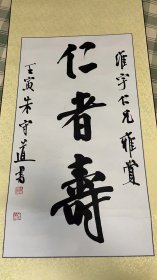 維宇仁兄雅賞
仁者壽
壬寅朱守道書